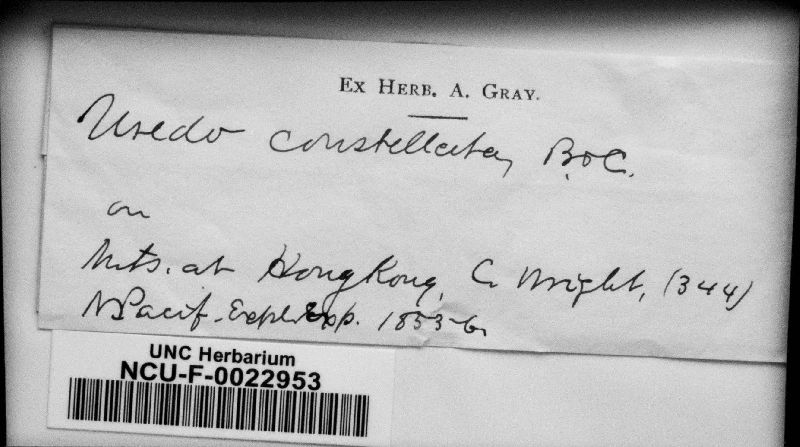 Ex Herb. A. Gray.
Uredo constellata, B. & C.
on
Mts. at Hong Kong, C. Wright, (344)
N Pacif. Expl. Exp. 1853-6.
UNC Herbarium
NCU-F-0022953